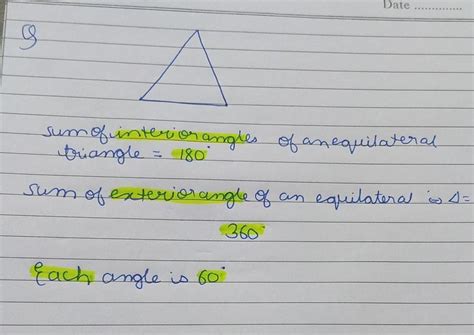 Date ..............
Q
sum of interior angles of an equilateral
triangle = 180°
sum of exterior angle of an equilateral is Δ=
360°
Each angle is 60°